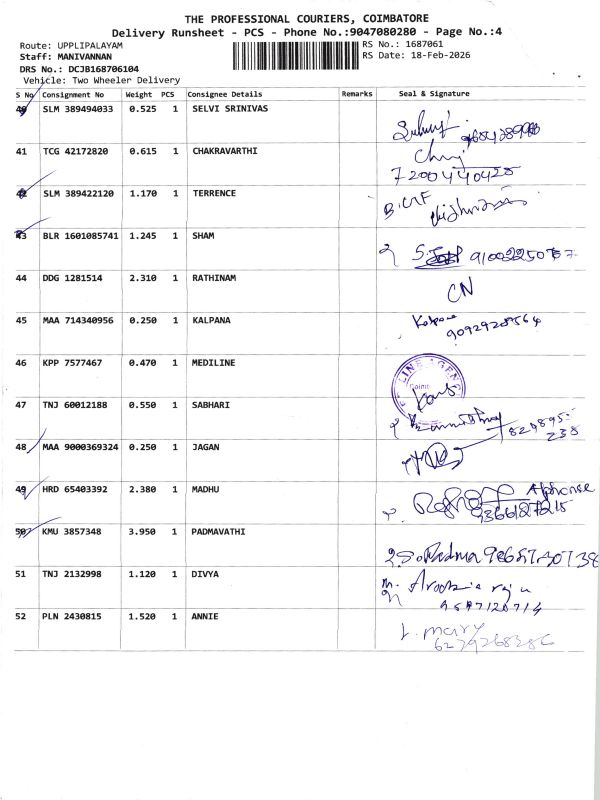 THE PROFESSIONAL COURIERS, COIMBATORE
Delivery Runsheet - PCS - Phone No.:9047080280 - Page No.:4
Route: UPPLIPALAYAM
RS No.: 1687061
Staff: MANIVANNAN
RS Date: 18-Feb-2026
DRS No.: DCJB168706104
Vehicle: Two Wheeler Delivery
S No Consignment No Weight PCS Consignee Details Remarks Seal & Signature
40 SLM 389494033 0.525 1 SELVI SRINIVAS
41 TCG 42172820 0.615 1 CHAKRAVARTHI
7200440425
42 SLM 389422120 1.170 1 TERRENCE
43 BLR 1601085741 1.245 1 SHAM
44 DDG 1281514 2.310 1 RATHINAM
CN
45 MAA 714340956 0.250 1 KALPANA
Kalpana
46 KPP 7577467 0.470 1 MEDILINE
LINE AGENC
47 TNJ 60012188 0.550 1 SABHARI
48 MAA 9000369324 0.250 1 JAGAN
49 HRD 65403392 2.380 1 MADHU
Alphonse
50 KMU 3857348 3.950 1 PADMAVATHI
Padma
51 TNJ 2132998 1.120 1 DIVYA
52 PLN 2430815 1.520 1 ANNIE
mary